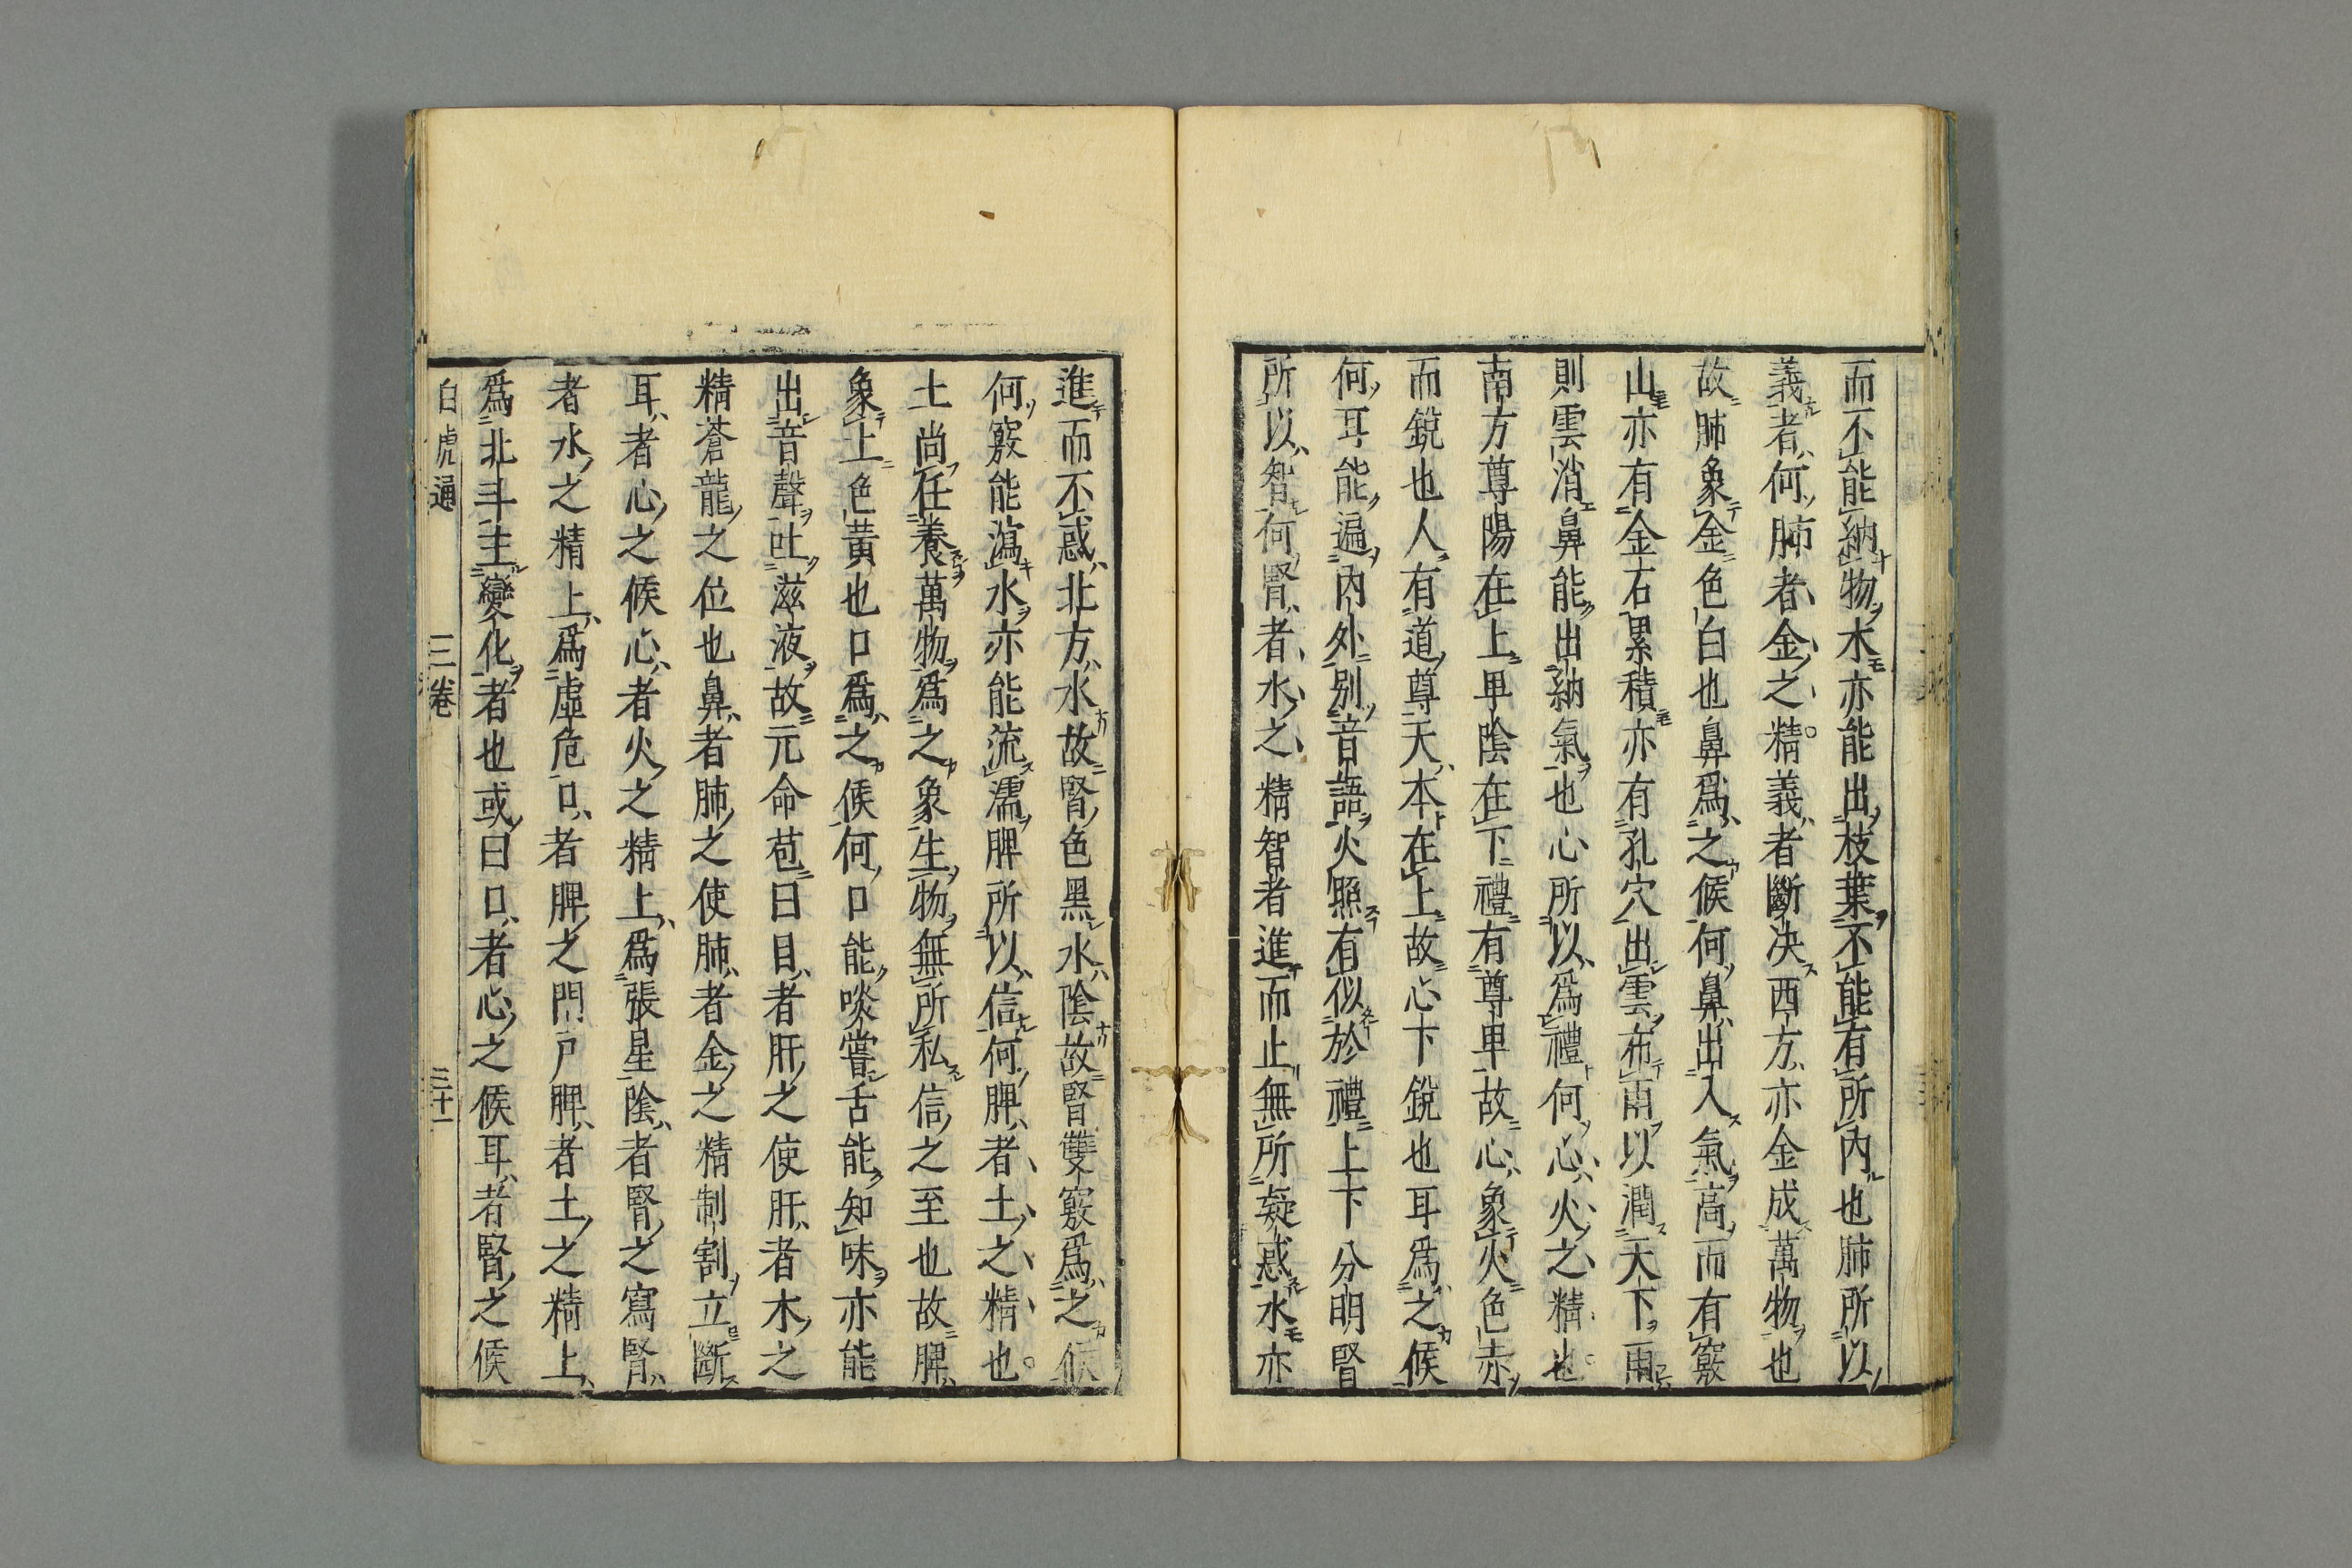 而不能納物木亦能出枝葉不能有所內也肺所以
義者何肺者金之精義者斷决西方亦金成萬物也
故肺象金色白也鼻爲之候何鼻出入氣高而有竅
山亦有金石累積亦有孔穴出雲布雨以潤天下雨
則雲消鼻能出納氣也心所以爲禮何心火之精也
南方尊陽在上卑陰在下禮有尊卑故心象火色赤
而銳也人有道尊天本在上故心下銳也耳爲之候
何耳能遍內外別音語火照有似於禮上下分明腎
所以智何腎者水之精智者進而止無所疑惑水亦
進而不惑北方水故腎色黑水陰故腎雙竅爲之候
何竅能瀉水亦能流濡脾所以信何脾者土之精也
土尚任養萬物爲之象生物無所私信之至也故脾
象土色黃也口爲之候何口能啖嘗舌能知味亦能
出音聲吐滋液故元命苞曰目者肝之使肝者木之
精蒼龍之位也鼻者肺之使肺者金之精制割立斷
耳者心之候心者火之精上爲張星陰者腎之寫腎
者水之精上爲虛危口者脾之門戶脾者土之精上
爲北斗主變化者也或曰口者心之候耳者腎之候
白虎通 三卷 三十一